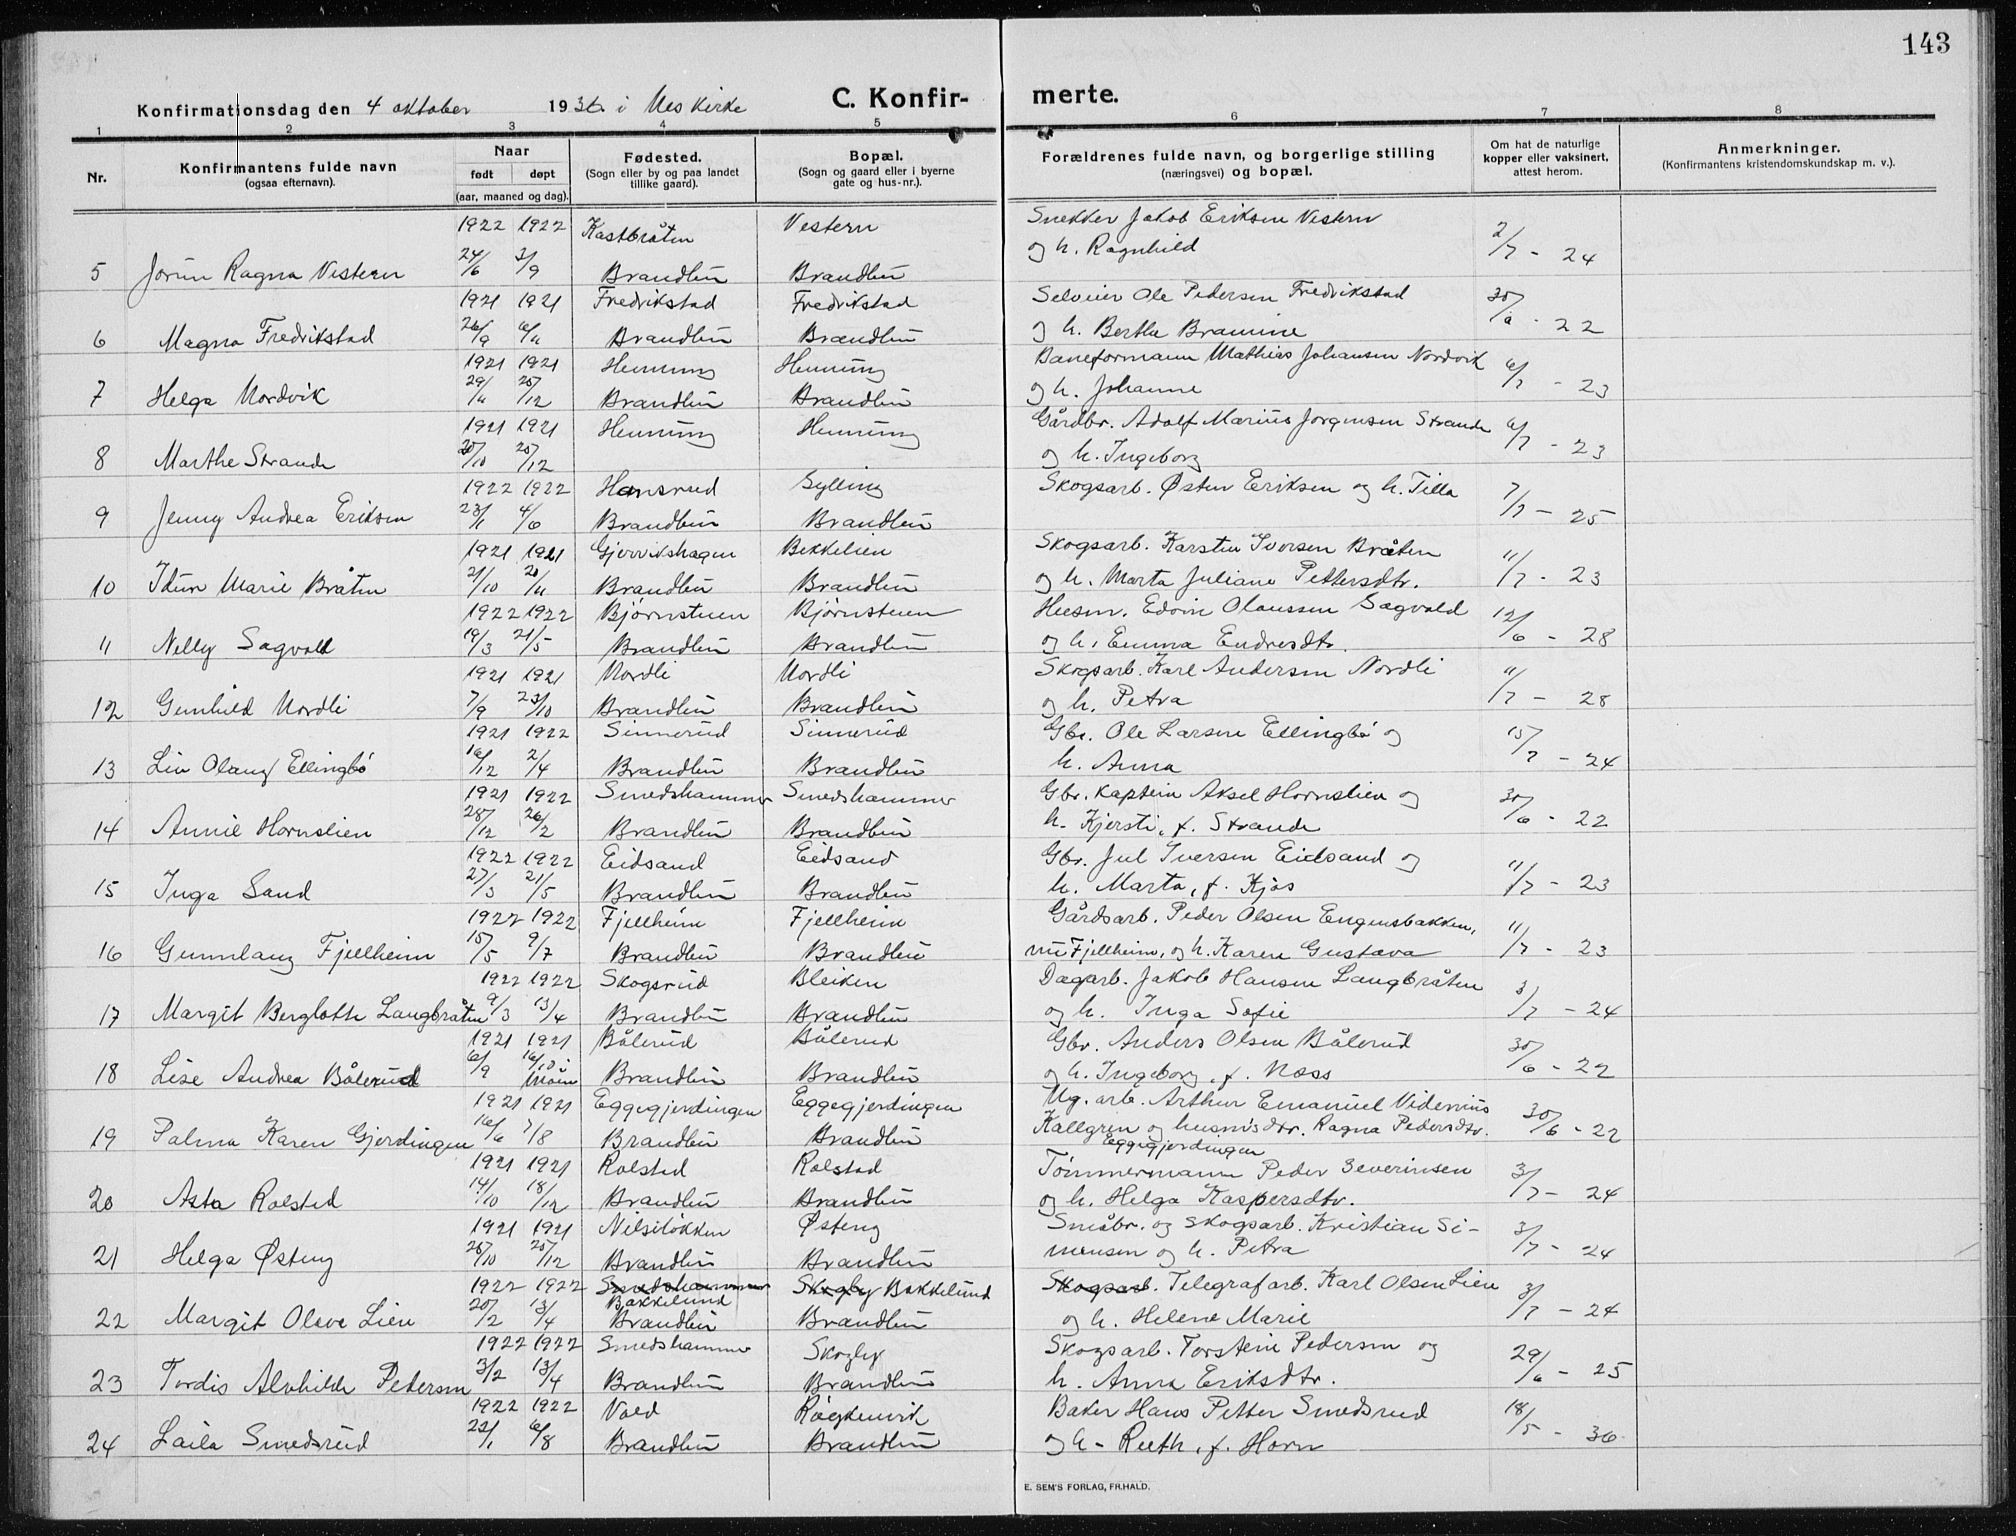 143
Konfirmationsdag den 4 oktober 1936 i Nes Kirke
C. Konfirmerte.
1 2 3 4 5 6 7 8
Nr.
Konfirmantens fulde navn
(ogsaa efternavn).
Naar
født døpt
(aar, maaned og dag).
Fødested.
(Sogn eller by og paa landet
tillike gaard).
Bopæl.
(Sogn og gaard eller i byerne
gate og hus-nr.).
Forældrenes fulde navn, og borgerlige stilling
(næringsvei) og bopæl.
Om hat de naturlige
kopper eller vaksinert,
attest herom.
Anmerkninger.
(Konfirmantens kristendomskundskap m. v.).
1922 1922 Kastbråten Vestern Snekker Jakob Eriksen Vestern
5 Jorun Ragna Vestern 24/6 3/9 Brandbu Brandbu og h. Ragnhild 2/7 - 24
1921 1921 Fredrikstad Fredrikstad Selveier Ole Pedersen Fredrikstad
6 Magna Fredrikstad 26/9 6/11 Brandbu Brandbu og h. Berthe 30/6 - 22
1921 1921 Henning Henning Baneformann Mathias Johansen Nordvik
7 Helga Nordvik 29/11 20/12 Brandbu Brandbu og h. Johanne 6/7 - 23
1921 1921 Henning Henning Gårdbr. Adolf Marius Jørgensen Strande
8 Marthe Strande 20/10 20/12 og h. Ingeborg 6/7 - 23
1922 1922 Hansrud Gylling Skogsarb. Østen Eriksen og h. Tilla
9 Jenny Andrea Eriksen 23/1 4/6 Brandbu Brandbu 7/7 - 25
1921 1921 Gjervikshagen Bekkelien Skogsarb. Karsten Iversen Bråten
10 Idun Marie Bråten 21/10 20/11 Brandbu Brandbu og h. Marta Juliane Pettersdtr. 11/7 - 23
1922 1922 Bjørnstuen Bjørnstuen Husm. Edvin Olaussen Sagvold
11 Nelly Sagvold 19/3 21/5 Brandbu Brandbu og h. Emma Endresdtr. 12/6 - 28
1921 1921 Nordli Nordli Skogsarb. Karl Andersen Nordli
12 Gunhild Nordli 7/9 23/10 Brandbu Brandbu og h. Petra 11/7 - 28
1921 1922 Sinnerud Sinnerud Gbr. Ole Larsen Ellingbø og
13 Liv Olaug Ellingbø 16/12 2/4 Brandbu Brandbu h. Anna 15/7 - 24
1921 1922 Smedshammer Smedshammer Gbr. kaptein Aksel Hornslien og
14 Annie Hornslien 28/12 26/2 Brandbu Brandbu h. Kjersti, f. Strande 30/6 - 22
1922 1922 Eidsand Eidsand Gbr. Jul Iversen Eidsand og
15 Inga Sand 27/3 21/5 Brandbu Brandbu h. Marta, f. Kjos 11/7 - 23
1922 1922 Fjellheim Fjellheim Gårdsarb. Peder Olsen Engensbakken,
16 Gunnlaug Fjellheim 15/5 9/7 Brandbu Brandbu nu Fjellheim, og h. Karen Gustava 11/7 - 23
1922 1922 Skogsrud Bleiken Dagarb. Jakob Hansen Langbråten
17 Margit Berglotte Langbråten 9/3 13/4 Brandbu Brandbu og h. Inga Sofie 3/7 - 24
1921 1921 Bålerud Bålerud Gbr. Anders Olsen Bålerud
18 Lise Andrea Bålerud 6/9 16/10 i Moen Brandbu Brandbu og h. Ingeborg, f. Næss 30/6 - 22
1921 1921 Eggegjerdingen Eggegjerdingen Ug. arb. Arthur Emanuel
19 Palma Karen Gjerdingen 16/6 7/8 Brandbu Brandbu Kallgren og husm'sdtr. Ragna Pedersdtr. 30/6 - 22
Eggegjerdingen
1921 1921 Rolstad Rolstad Tømmermann Peder Severinsen
20 Asta Rolstad 14/10 18/12 Brandbu Brandbu og h. Helga Kaspersdtr. 3/7 - 24
1921 1921 Nilsiløkken Østeng Småbr. og skogsarb. Kristian Si-
21 Helga Østeng 26/10 20/12 Brandbu Brandbu mensen og h. Petra 3/7 - 24
1922 1922 Smedshammer Skogby Bakkelund Skogsarb. Telegrafarb. Karl Olsen Lien
Bakkelund
22 Margit Olave Lien 20/2 13/4 Brandbu Brandbu og h. Helene Marie 3/7 - 24
1922 1922 Smedshammer Skogby Skogsarb. Torstein Pedersen og
23 Tordis Alvhilde Pedersen 3/2 13/4 Brandbu Brandbu h. Anna Eriksdtr. 29/6 - 25
1922 1922 Vold Røykenvik Baker Hans Petter Smedsrud
24 Laila Smedsrud 22/1 6/8 Brandbu Brandbu og h. Ruth, f. Horn 18/5 - 36
E. SEM'S FORLAG, FR.HALD.